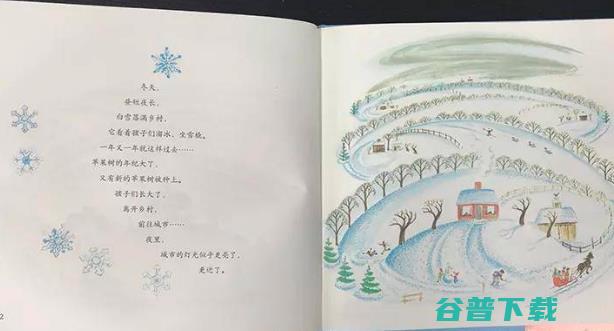 冬天，
昼短夜长，
白雪落满乡村，
它看着孩子们溜冰、坐雪橇。
一年又一年就这样过去……
苹果树的年纪大了，
又有新的苹果树被种上。
孩子们长大了，
离开乡村，
前往城市……
夜里，
城市的灯光似乎更亮了，
更近了。
2
谷普下载